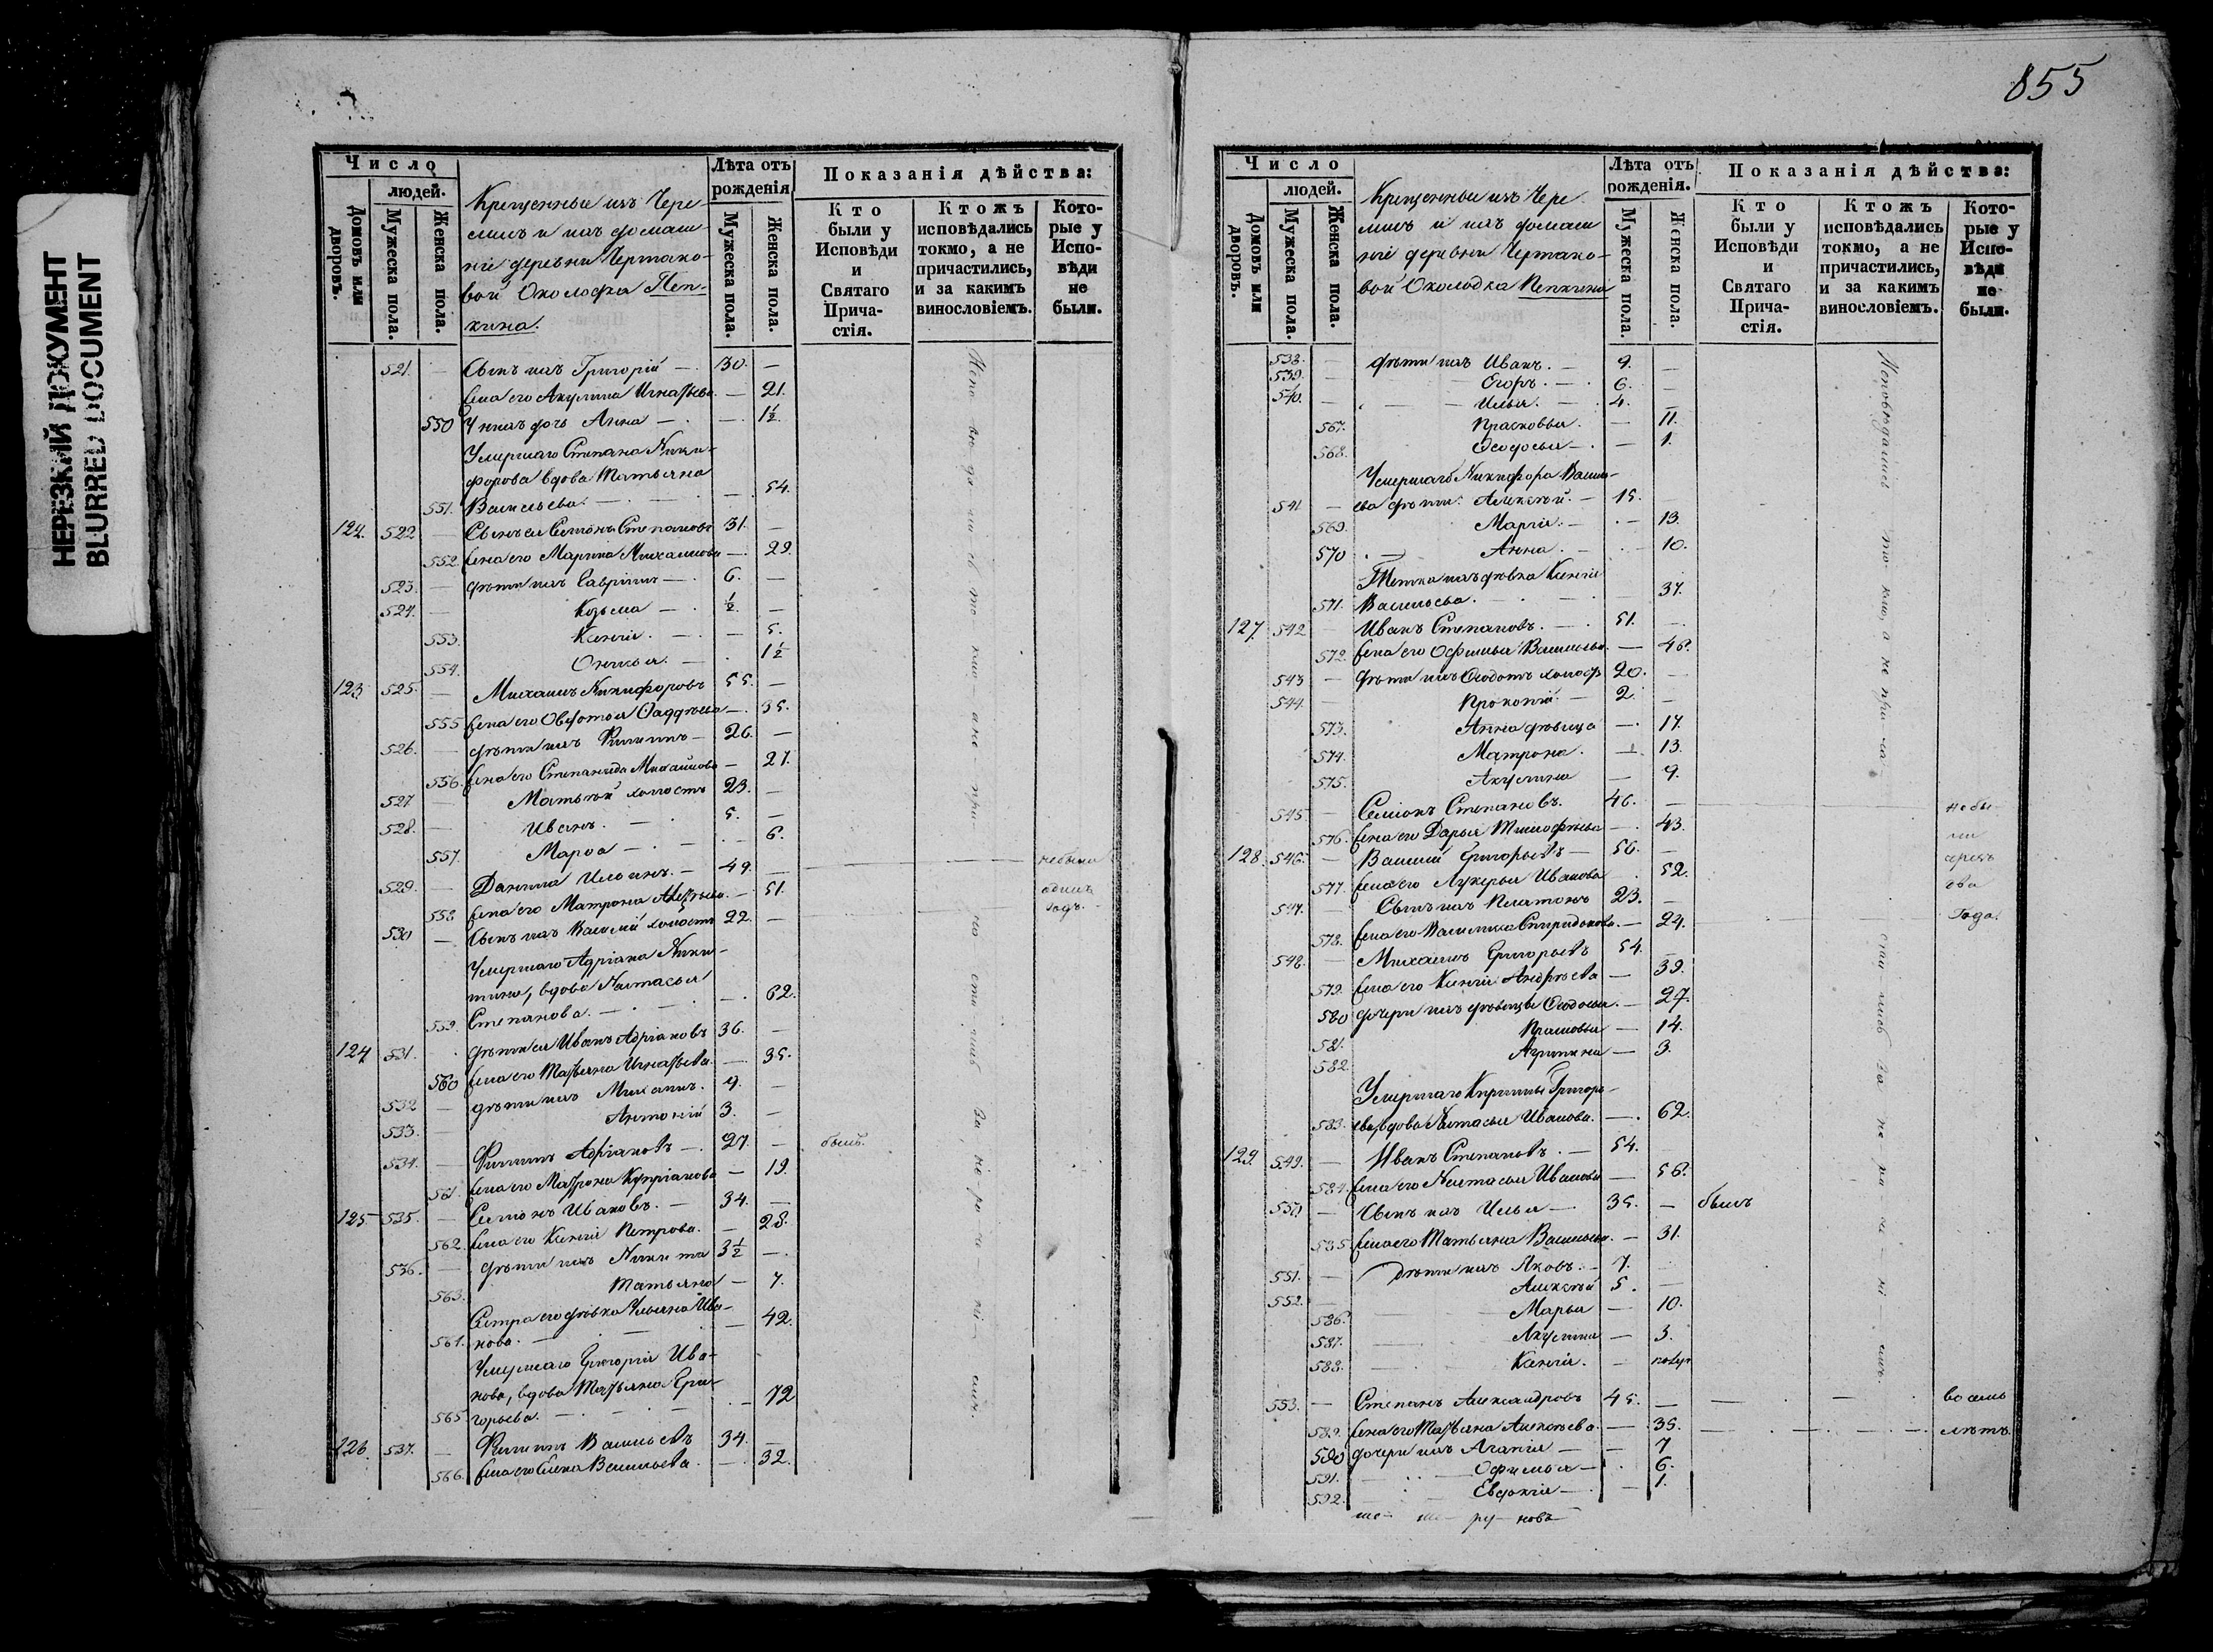 НЕРЕЗКИЙ ДОКУМЕНТ
BLURRED DOCUMENT
Число
людей.
Домовъ или дворовъ.
Мужеска пола.
Женска пола.
Крещенные изъ Чере-
мисъ и ихъ домаш-
ніе деревни Чертако-
вой Околодка Пеп-
кина.
Лѣта отъ рожденія
Мужеска пола.
Женска пола.
Показанія дѣйства:
Кто были у Исповѣди и Святаго Прича-стія.
Ктожъ исповѣдались токмо, а не причастились, и за какимъ винословіемъ.
Кото-рые у Испо-вѣди не были.
521. — Сынъ ихъ Григорій — 30. —
жена его Акулина Игнатьева. — 21.
550 У нихъ дочь Анна — 1½.
Умершаго Степана Ники-
форова вдова Татьяна
551. Васильева. — 54.
122. 522 — Сынъ ея Семіонъ Степановъ 31. —
552. жена его Марина Михаилова — 29.
523. — дѣти ихъ Гавріилъ — 6. —
524. — Козьма — ½. —
553. Ксенія. — 5.
554. — 1½
123 525. — Михаилъ Никифоровъ 55. —
555 жена его Овдотья Фаддѣева — 35.
526. — дѣти ихъ Филиппъ — 26. —
556. жена его Степанида Михайлова — 27.
527 — Матвѣй холостъ 23. —
528. — Иванъ. — 5. —
557. Марѳа — 6.
529. — Данила Ильинъ. — 49. — небыли
558 жена его Матрона — 51. одинъ
530 — Сынъ ихъ Василій холостъ 22. — годъ.
Умершаго Адріана Ники-
тина, вдова Настасья
559. Степанова. — 62.
124 531. дѣти ея Иванъ Адріановъ 36. —
560 жена его Татьяна Игнатьева. — 35.
532 — дѣти ихъ Михаилъ. 9. —
533. — Антоній 3. —
534. — Филиппъ Адріановъ — 27. — былъ.
561. жена его Матрона Купріанова — 19.
125 535. — Семіонъ Ивановъ. — 34. —
562. жена его Ксенія Петрова. — 28.
536. — дѣти ихъ Никита 3½ —
563. Татьяна — 7.
Сестра его дѣвка Ульяна Ива-
564. нова. — 42.
Умершаго Григорія Ива-
нова, вдова Татьяна Гри-
565. горьева. — 72
126. 537. — Филиппъ Васильевъ 34. —
566. жена его Елена Васильева. — 32.
Исповѣдались токмо, а не причастились за нераченіемъ.
855
Число
людей.
Домовъ или дворовъ.
Мужеска пола.
Женска пола.
Крещенные изъ Чере
мисъ и ихъ домаш
ніе деревни Чертако-
вой Околодка Пепкина
Лѣта отъ рожденія.
Мужеска пола.
Женска пола.
Показанія дѣйства:
Кто были у Исповѣди и Святаго Прича-стія.
Ктожъ исповѣдались токмо, а не причастились, и за какимъ винословіемъ.
Кото-рые у Испо-вѣди не были.
538. — дѣти ихъ Иванъ. — 9. —
539. — Егоръ. — 6. —
540. — Илья. — 4. —
567. Прасковья. — 11.
568. Ѳеодосья — 1.
Умершаго Никифора Василь-
541 — ева дѣти: Алексѣй. — 15. —
569. Марія. — 13.
570 Анна. — 10.
Тетка ихъ дѣвка Ксенія
571. Васильева. — 37.
127 542 — Иванъ Степановъ. — 51. —
572. жена его Офимья Васильева. — 48.
543 — дѣти ихъ Ѳеодотъ холост 20. —
544 — Прокопій — 2. —
573. Анна дѣвица — 17.
574. Матрона. — 13.
575. Акулина — 9.
545. — Семіонъ Степановъ. 46. — небы
576. жена его Дарья Тимофѣева — 43. ли
128. 546. — Василій Григорьевъ — 56. — чрезъ
577. жена его Лукерья Иванова 52. два
547. — Сынъ ихъ Платонъ 23. — Года.
578. жена его Василиса Спиридонова. — 24.
548. — Михаилъ Григорьевъ 54. —
579. жена его Ксенія Андрѣева — 39.
580 дочери ихъ дѣвицы Ѳеодосья. — 27.
581. Прасковья — 14.
582. Агрипина — 3.
Умершаго Кириллы Григорь-
583. ева вдова Настасья Иванова. — 62.
129. 549. — Иванъ Степановъ. — 54. —
584. жена его Настасья Иванова — 56.
550 — Сынъ ихъ Илья — 35. — былъ
585. жена его Татьяна Васильева. — 31.
551. — Дѣти ихъ Яковъ. — 7. —
552. — Алексѣй 5. —
586. Марья — 10.
587. Акулина — 3.
588. Ксенія. — полуг
553. — Степанъ Александровъ 45. — восемь
589. жена его Татьяна Алексѣева. — 35. лѣтъ.
590 дочери ихъ Агапія — 7
591. Офимья — 6.
592. Евдокія — 1.
Исповѣдались токмо, а не причастились за нераченіемъ.